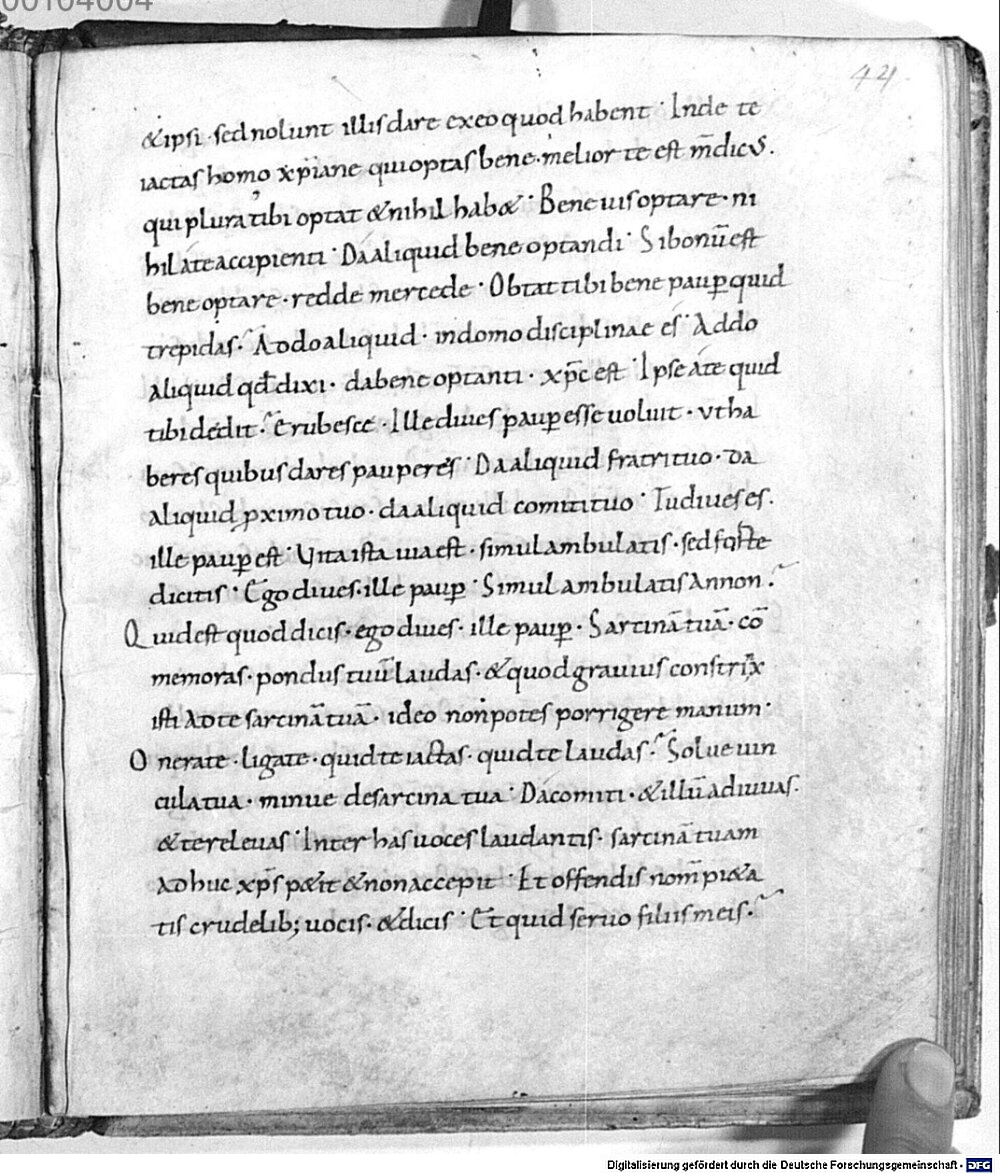 00104004
44
&ipsi · sed nolunt illis dare ex eo quod habent · Inde te
iactas homo xp̄iane qui optas bene · melior te est m̄dicus.
qui plura tibi optat & nihil hab& · Bene uis optare · ni
hil a te accipienti · Da aliquid bene optandi · Si bonū est
bene optare · redde mercede · Obtat tibi bene paup̲ quid
trepidas · Addo aliquid · in domo disciplinae es · Addo
aliquid qd̄ dixi · da bene optanti · xp̄c est · Ipse a te quid
tibi dedit · Erubesce · Ille diues paup̲ esse uoluit · vt ha
beres quibus dares pauperes · Da aliquid fratri tuo · da
aliquid p̲ximo tuo · da aliquid comiti tuo · Tu diues es.
ille paup̲ est · Uita ista uia est · simul ambulatis · sed forte
dicitis · Ego diues · ille paup̲ · Simul ambulatis annon.
Quid est quod dicis · ego diues · ille paup̲ · Sarcinā tuā · cō
memoras · pondus tuū laudas · & quod grauius constrix
isti ad te sarcinā tuā · ideo non potes porrigere manum ·
Onerate · ligate · quid te iactas · quid te laudas · Solue uin
cula tua · minue de sarcina tua · Da comiti · & illū adiuuas ·
& te releuas · Inter has uoces laudantis · sarcinā tuam
Adhuc xp̄s p&it & non accepit · Et offendis nom̄ pi&a
tis crudelib; uocis · & dicis · Et quid seruo filiis meis.
Digitalisierung gefördert durch die Deutsche Forschungsgemeinschaft · DFG